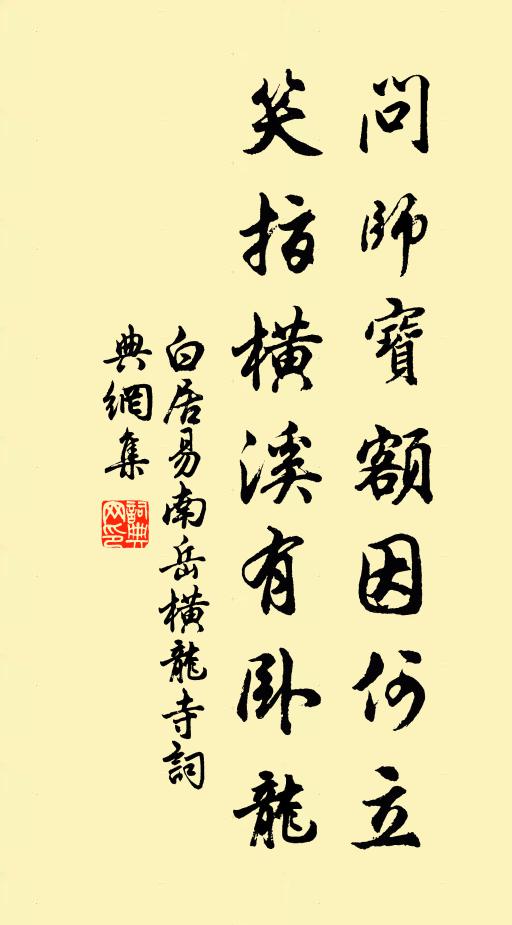 問師寶額因何立
笑指橫溪有卧龍
白居易南岳橫龍寺詞
典網集
詞典網印